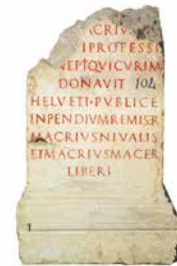 ACRIV
I PROFESSI
NEPIQVICVRIM
DONAVIT 104
HELVETI·PVBLICE
INPENDIVMREMISER
MACRIVSNIVALIS
ETMACRIVSMACER
LIBERI